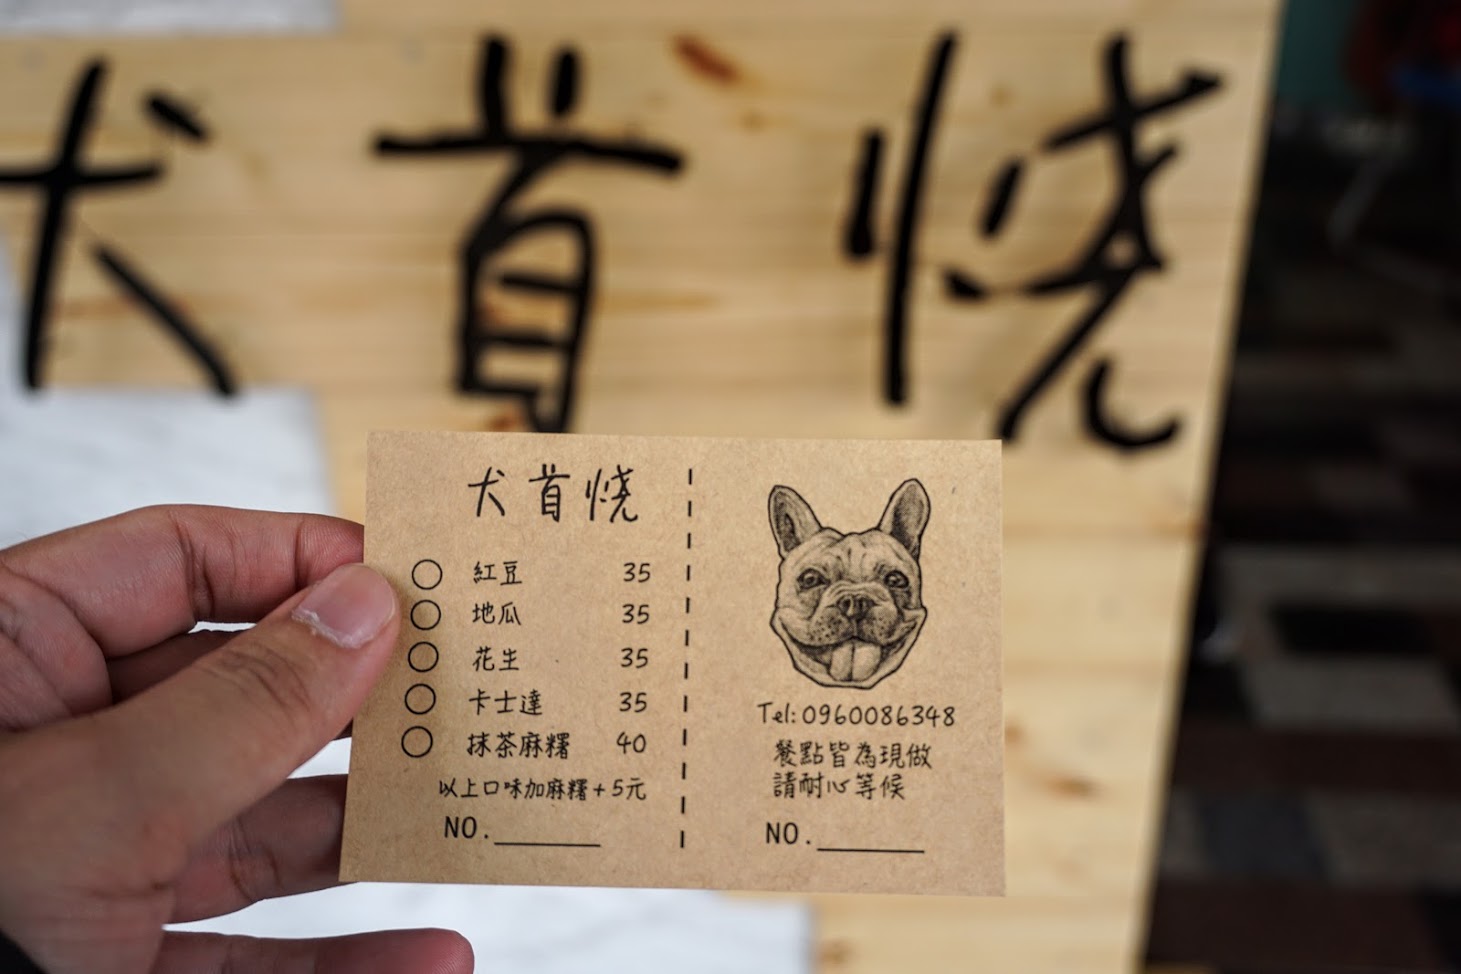 犬首燒
犬首燒
紅豆 35
地瓜 35
花生 35
卡士達 35
抹茶麻糬 40
以上口味加麻糬+5元
NO.
Tel:0960086348
餐點皆為現做
請耐心等候
NO.